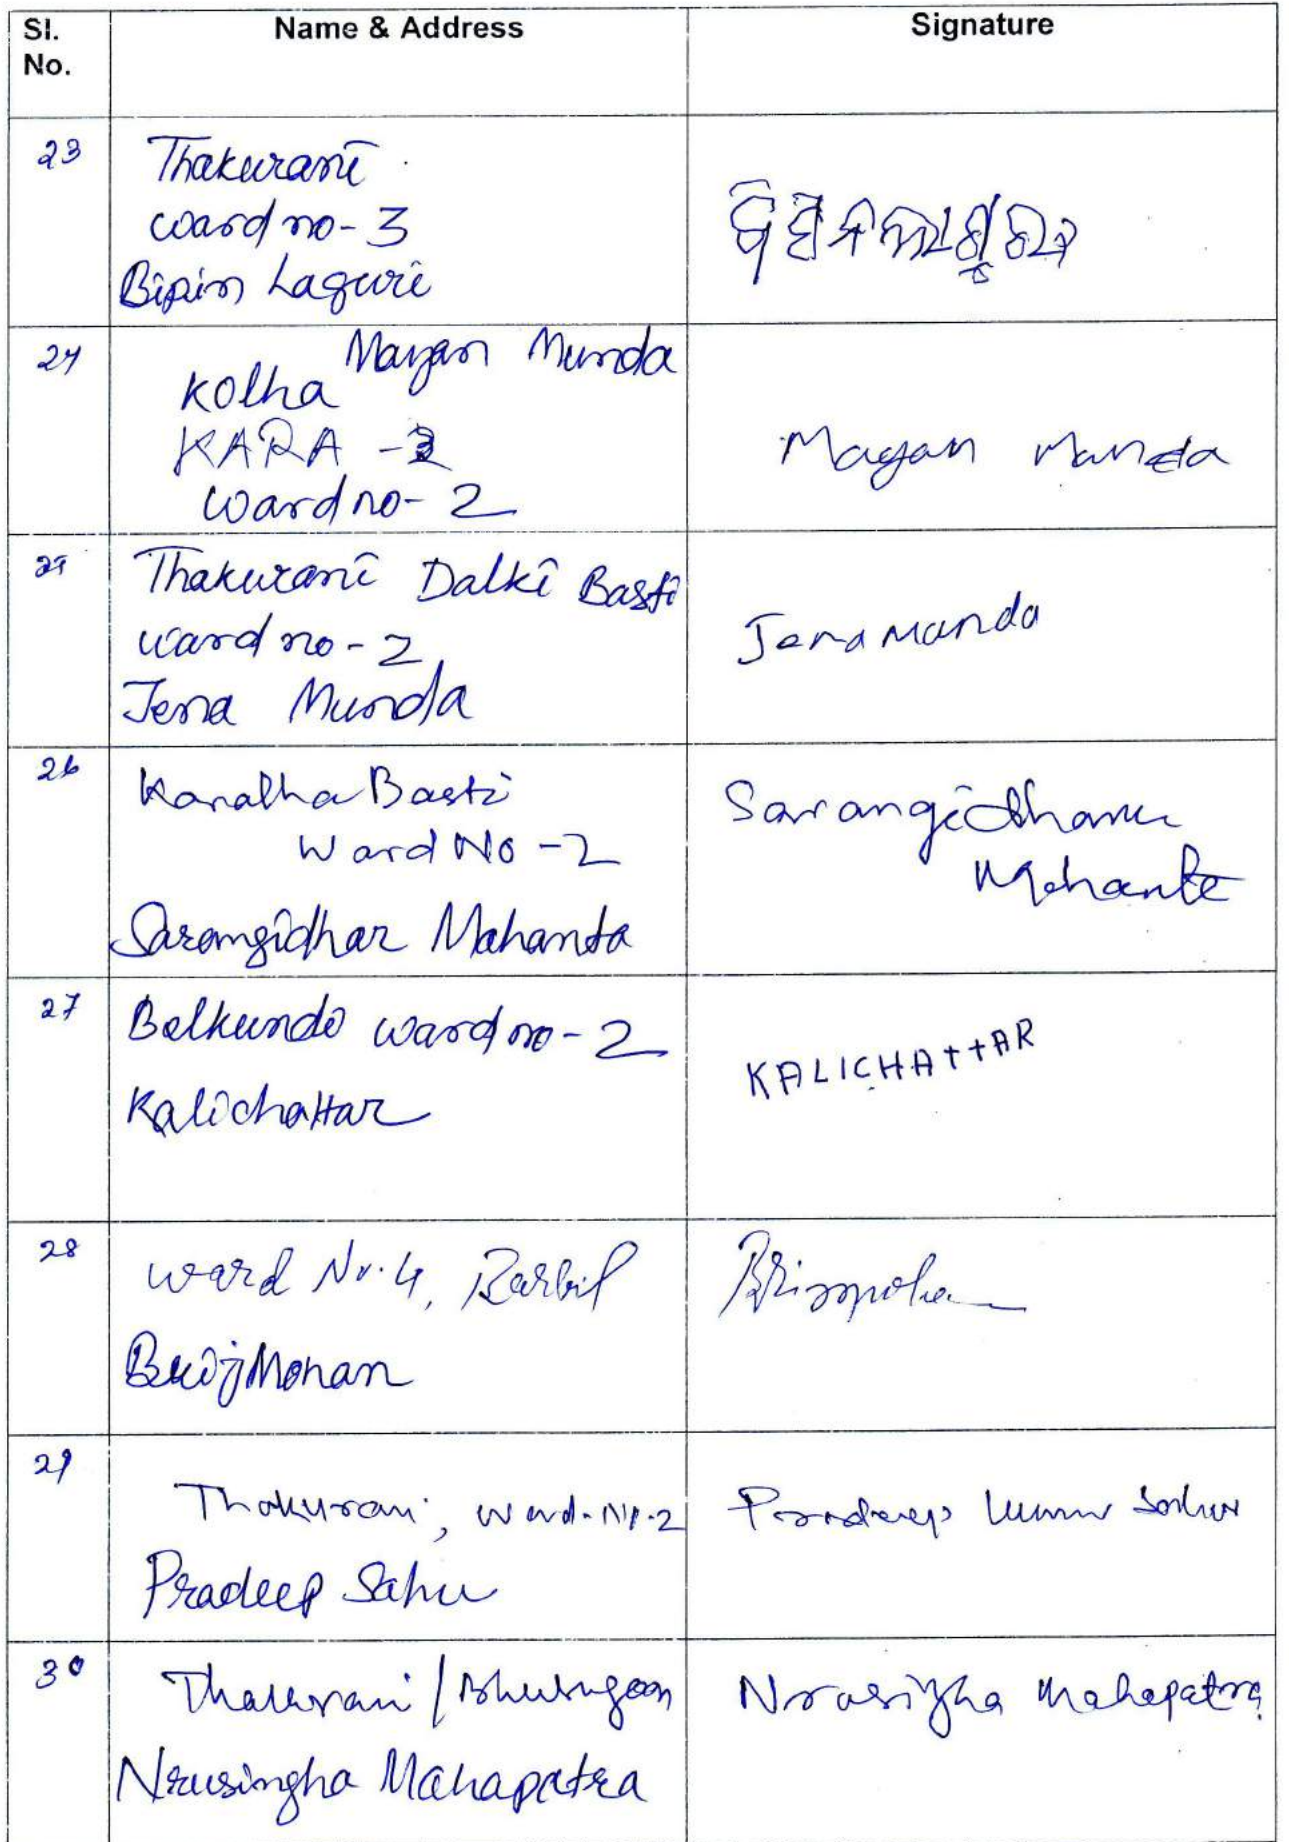 Sl. No.
Name & Address
Signature
23
Thakurani
ward no-3
Bipin Laguri
24
Mangan Munda
Kolha
KARA -2
ward no-2
Magan Manda
25
Thakurani Dalki Basti
ward no-2
Jena Munda
Jena Munda
26
Kanalha Basti
Ward No-2
Sarangidhar Mahanta
Sarangidhar
Mahanta
27
Belkundi ward no-2
Kalichattar
KALICHATTAR
28
ward No.4, Barbil
BrijMohan
29
Thakurani, Ward-No-2
Pradeep Kumar Sahu
Pradeep Sahu
30
Thakurani /
Nrusingha Mahapatra
Nrusingha Mahapatra